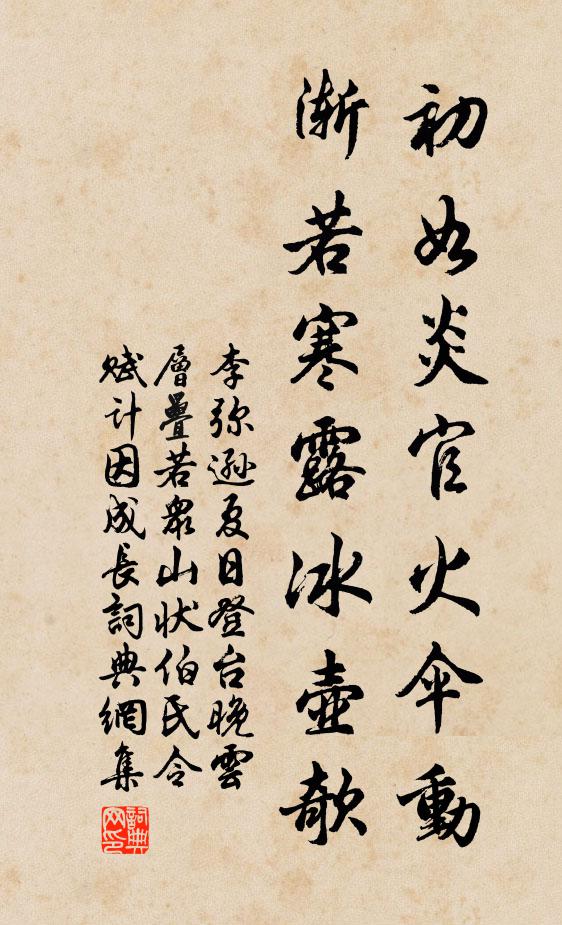 初如炎官火伞動
漸若寒露冰壺欹
李弥遜夏日登台晚雲
層疊若衆山状伯氏令
賦計因成長詞典網集
詞典网印